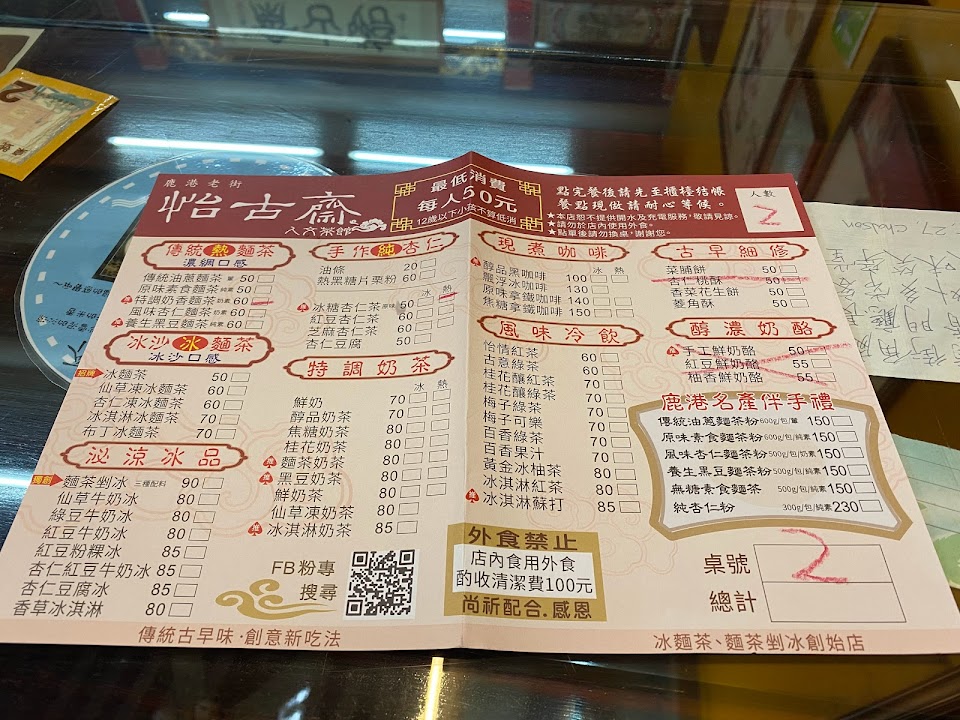 鹿港老街
怡古齋
人文茶館
最低消費
每人50元
12歲以下小孩不算低消
點完餐後請先至櫃檯結帳
餐點現做故請耐心等候。
★本店恕不提供開水及充電服務，敬請見諒。
★請勿於店內使用外食。
★點單後請勿換桌，謝謝您。
人數
2
傳統熱麵茶
濃綢口感
傳統油蔥麵茶 葷 50
原味素食麵茶 純素 50
特調奶香麵茶 奶素 60
風味杏仁麵茶 奶素 60
養生黑豆麵茶 純素 60
冰沙冰麵茶
冰沙口感
招牌 冰麵茶 50
仙草凍冰麵茶 60
杏仁凍冰麵茶 60
冰淇淋冰麵茶 70
布丁冰麵茶 70
沁涼冰品
獨創 麵茶剉冰 三種配料 90
仙草牛奶冰 80
綠豆牛奶冰 80
紅豆牛奶冰 80
紅豆粉粿冰 85
杏仁紅豆牛奶冰 85
杏仁豆腐冰 85
香草冰淇淋 80
手作純杏仁
油條 20
熱黑糖片栗粉 60
冰 熱
冰糖杏仁茶 原味 50
紅豆杏仁茶 60
芝麻杏仁茶 60
杏仁豆腐 50
特調奶茶
冰 熱
鮮奶 70
醇品奶茶 70
焦糖奶茶 80
桂花奶茶 80
麵茶奶茶 80
黑豆奶茶 80
鮮奶茶 80
仙草凍奶茶 80
冰淇淋奶茶 85
FB粉專
搜尋
現煮咖啡
冰 熱
醇品黑咖啡 100
飄浮冰咖啡 130
原味拿鐵咖啡 140
焦糖拿鐵咖啡 150
風味冷飲
怡情紅茶 60
古意綠茶 60
桂花釀紅茶 70
桂花釀綠茶 70
梅子綠茶 70
梅子可樂 70
百香綠茶 70
百香果汁 70
黃金冰柚茶 80
冰淇淋紅茶 80
冰淇淋蘇打 85
外食禁止
店內食用外食
酌收清潔費100元
尚祈配合.感恩
古早細修
菜脯餅 50
杏仁桃酥 50
香菜花生餅 50
菱角酥 50
醇濃奶酪
手工鮮奶酪 50
紅豆鮮奶酪 55
柚香鮮奶酪 55
鹿港名產伴手禮
傳統油蔥麵茶粉 600g/包/葷 150
原味素食麵茶粉 600g/包/純素 150
風味杏仁麵茶粉 500g/包/奶素 150
養生黑豆麵茶粉 500g/包/純素 150
無糖素食麵茶 500g/包/純素 150
純杏仁粉 300g/包/純素 230
桌號 2
總計
傳統古早味·創意新吃法
冰麵茶、麵茶剉冰創始店